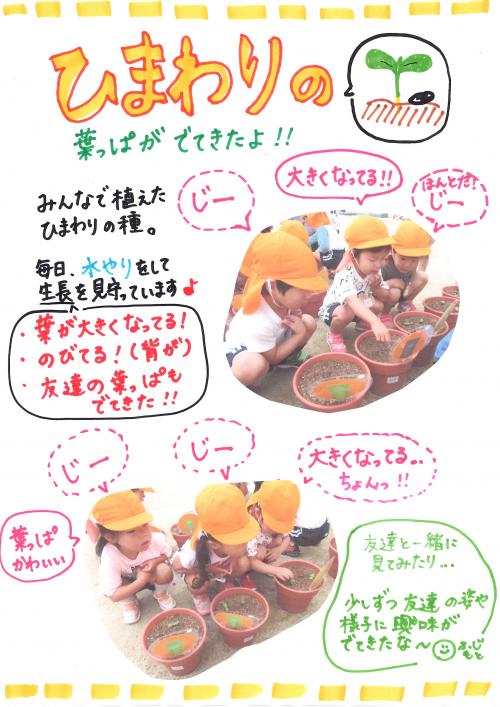 ひまわりの
葉っぱがでてきたよ!!
みんなで植えた
ひまわりの種。
毎日、水やりをして
生長を見守っています♪
・葉が大きくなってる!
・のびてる!(背が)
・友達の葉っぱも
でてきた!!
じー
大きくなってる!!
ほんとだ!
じー
じー
じー
大きくなってる…
ちょんっ!!
葉っぱ
かわいい
友達と一緒に
見てみたり…
少しずつ友達の姿や
様子に興味が
でてきたな〜
ふじ
もと